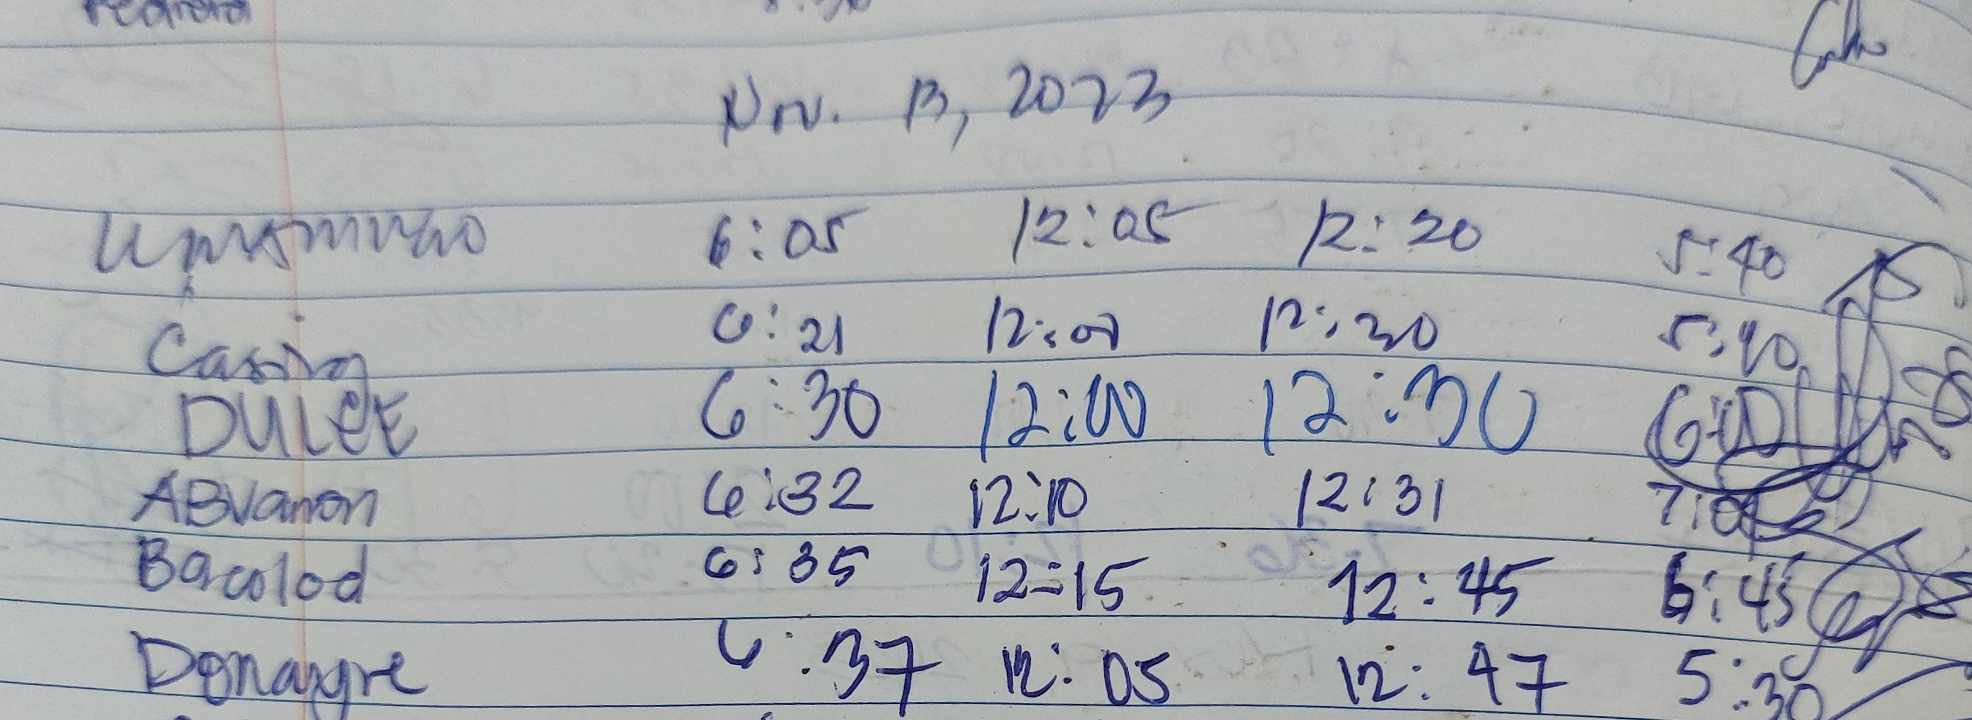 Nov. 13, 2023
6:05 12:05 12:20 5:40
Casing 6:21 12:07 12:30 5:40
DULCE 6:30 12:00 12:30 6:00
ABVanon 6:32 12:10 12:31
Bacolod 6:35 12:15 12:45 6:45
Donaygre 6:37 12:05 12:47 5:30